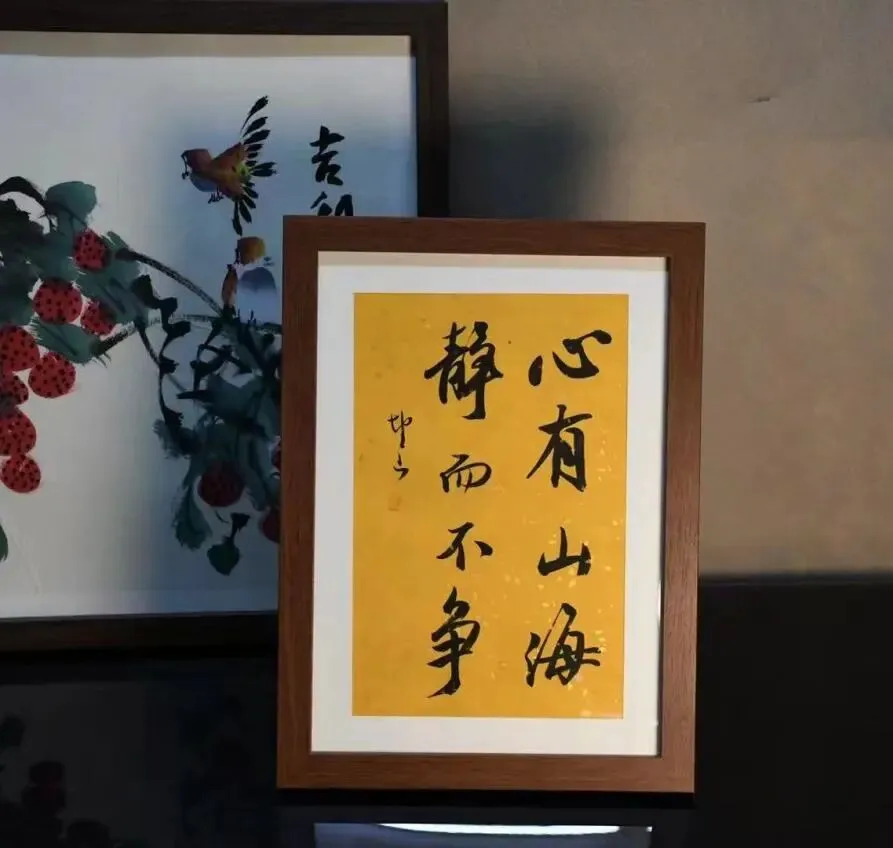 心有山海
静而不争
坤山
吉